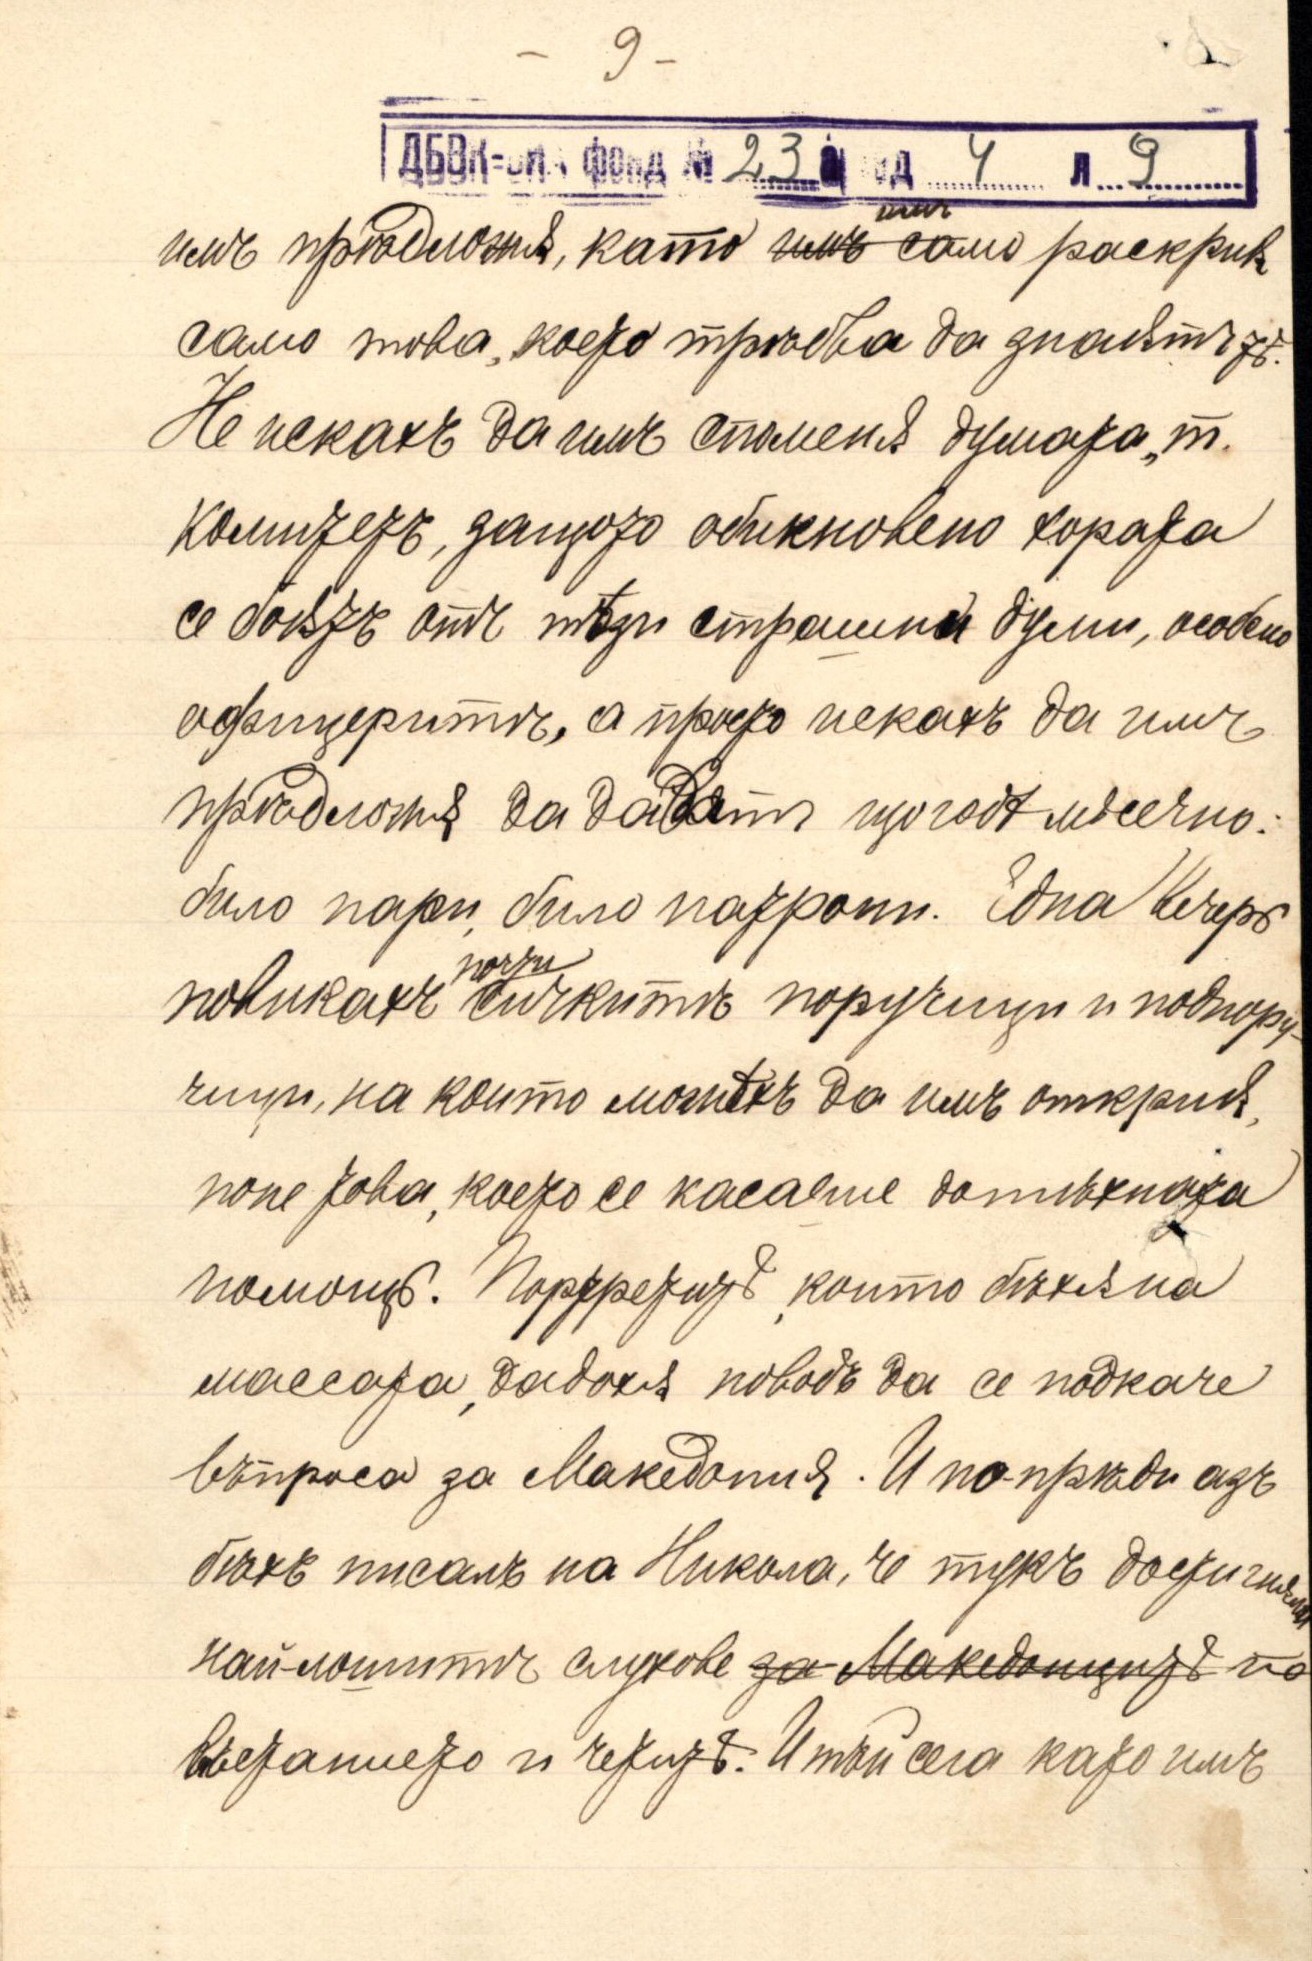 - 9 -
ДБВК-ОИА фонд № 23 од 4 л. 9
имъ прѣдложѫ, като имъ само имъ раскриѭ
само това, което трѣбва да знаѭтъ тѣ.
Не искахъ да имъ споменѫ думата „т.
комитетъ, защото обикновено хората
се боѭтъ отъ тѣзи страшни думи, особено
офицеритѣ, а просто искахъ да имъ
прѣдложѫ да даватъ щогодѣ мѣсечно:
било пари, било патрони. Една вечерь
повикахъ почти сичкитѣ поручици и подпору-
чици, на които можѣхъ да имъ откриѭ,
поне това, което се касаеше до тѣхната
помощь. Портретитѣ, които бѣхѫ на
массата, дадохѫ поводъ да се подкаче
въпроса за Македония. И по-прѣди азъ
бѣхъ писалъ на Никола, че тукъ достигнѫли
най-лошитѣ слухове за Македонцитѣ по
въстанието и четитѣ. И тъй сега като имъ